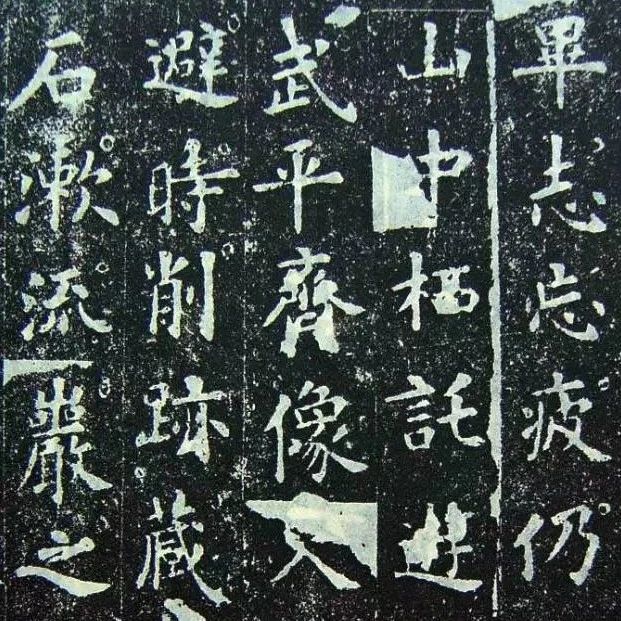 畢志忘疲仍
山中栖託遊
武平齊像入
避時削跡藏
石漱流巖之